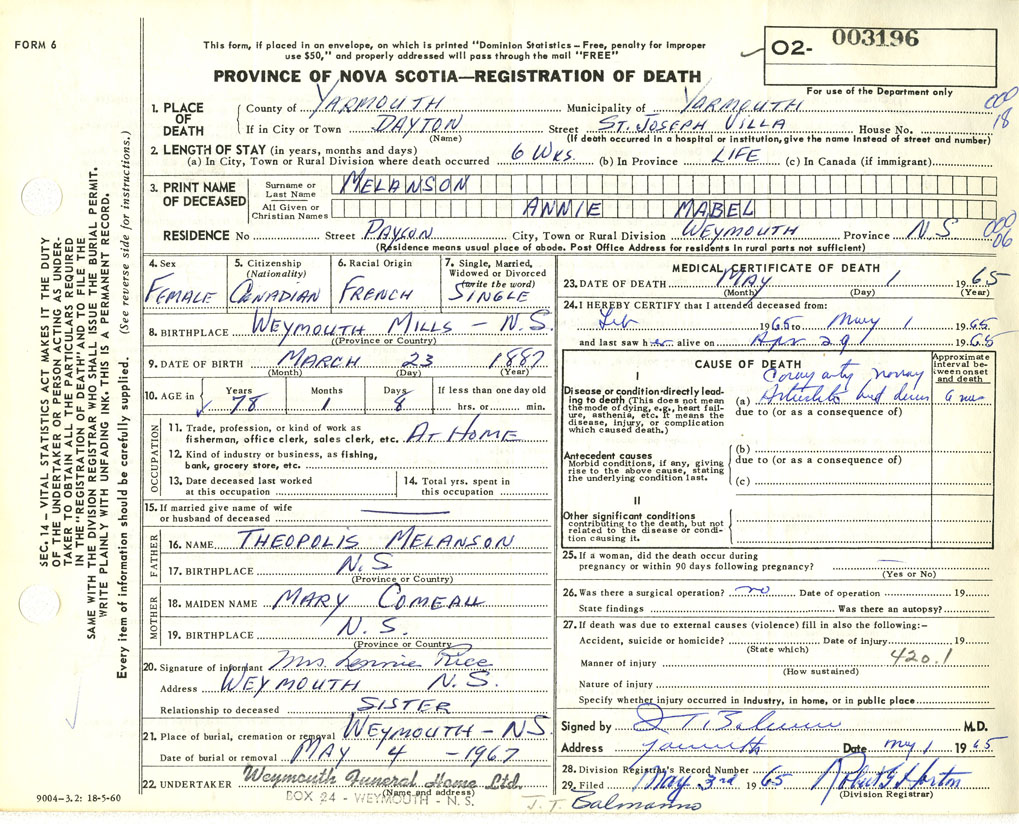 FORM 6
This form, if placed in an envelope, on which is printed "Dominion Statistics – Free, penalty for improper
use $50," and properly addressed will pass through the mail "FREE"
O2- 003196
For use of the Department only
PROVINCE OF NOVA SCOTIA—REGISTRATION OF DEATH
000
18
1. PLACE OF DEATH
County of YARMOUTH Municipality of YARMOUTH
If in City or Town DAYTON Street ST. JOSEPH VILLA House No.
(Name) (If death occurred in a hospital or institution, give the name instead of street and number)
2. LENGTH OF STAY (in years, months and days)
(a) In City, Town or Rural Division where death occurred 6 WKS. (b) In Province LIFE (c) In Canada (if immigrant)
3. PRINT NAME OF DECEASED
Surname or Last Name MELANSON
All Given or Christian Names ANNIE MABEL
RESIDENCE No Street PAYSON City, Town or Rural Division WEYMOUTH Province N.S.
000
06
(Residence means usual place of abode. Post Office Address for residents in rural parts not sufficient)
4. Sex
FEMALE
5. Citizenship
(Nationality)
CANADIAN
6. Racial Origin
FRENCH
7. Single, Married,
Widowed or Divorced
(write the word)
SINGLE
8. BIRTHPLACE WEYMOUTH MILLS – N.S.
(Province or Country)
9. DATE OF BIRTH MARCH 23 1887
(Month) (Day) (Year)
10. AGE in Years Months Days If less than one day old
78 1 8 hrs. or min.
OCCUPATION
11. Trade, profession, or kind of work as
fisherman, office clerk, sales clerk, etc. AT HOME
12. Kind of industry or business, as fishing,
bank, grocery store, etc.
13. Date deceased last worked
at this occupation
14. Total yrs. spent in
this occupation
15. If married give name of wife
or husband of deceased
FATHER
16. NAME THEOPOLIS MELANSON
17. BIRTHPLACE N.S
(Province or Country)
MOTHER
18. MAIDEN NAME MARY COMEAU
19. BIRTHPLACE N.S.
(Province or Country
20. Signature of informant Mrs. Lennie Rice
Address WEYMOUTH N.S.
Relationship to deceased SISTER
21. Place of burial, cremation or removal WEYMOUTH – NS
Date of burial or removal MAY 4 – 1967
22. UNDERTAKER Weymouth Funeral Home Ltd.
(Name and address)
BOX 24 - WEYMOUTH - N.S.
9004-3.2: 18-5-60
MEDICAL CERTIFICATE OF DEATH
23. DATE OF DEATH MAY 1 1965
(Month) (Day) (Year)
24. I HEREBY CERTIFY that I attended deceased from:
Feb 1965 to May 1 1965
and last saw her alive on Apr 29 1965
CAUSE OF DEATH
Approximate
interval between onset
and death
I
Disease or condition directly leading to death (This does not mean
the mode of dying, e.g., heart failure, asthenia, etc. It means the
disease, injury, or complication
which caused death.)
(a)
due to (or as a consequence of)
Antecedent causes
Morbid conditions, if any, giving
rise to the above cause, stating
the underlying condition last.
(b)
due to (or as a consequence of)
(c)
II
Other significant conditions
contributing to the death, but not
related to the disease or condition causing it.
25. If a woman, did the death occur during
pregnancy or within 90 days following pregnancy?
(Yes or No)
26. Was there a surgical operation? no Date of operation 19
State findings Was there an autopsy?
27. If death was due to external causes (violence) fill in also the following:-
Accident, suicide or homicide? Date of injury 19
(State which) 420.1
Manner of injury
(How sustained)
Nature of injury
Specify whether injury occurred in Industry, in home, or in public place
Signed by J T. Balmanno M.D.
Address Yarmouth Date May 1 1965
28. Division Registrar's Record Number
29. Filed May 3rd 1965 Robert G Horton
(Division Registrar)
J. T. Balmanno
SEC. 14 – VITAL STATISTICS ACT MAKES IT THE DUTY
OF THE UNDERTAKER OR PERSON ACTING AS UNDER-
TAKER TO OBTAIN ALL THE PARTICULARS REQUIRED
IN THE "REGISTRATION OF DEATH" AND TO FILE THE
SAME WITH THE DIVISION REGISTRAR WHO SHALL ISSUE THE BURIAL PERMIT.
WRITE PLAINLY WITH UNFADING INK. THIS IS A PERMANENT RECORD.
Every item of information should be carefully supplied. (See reverse side for instructions.)